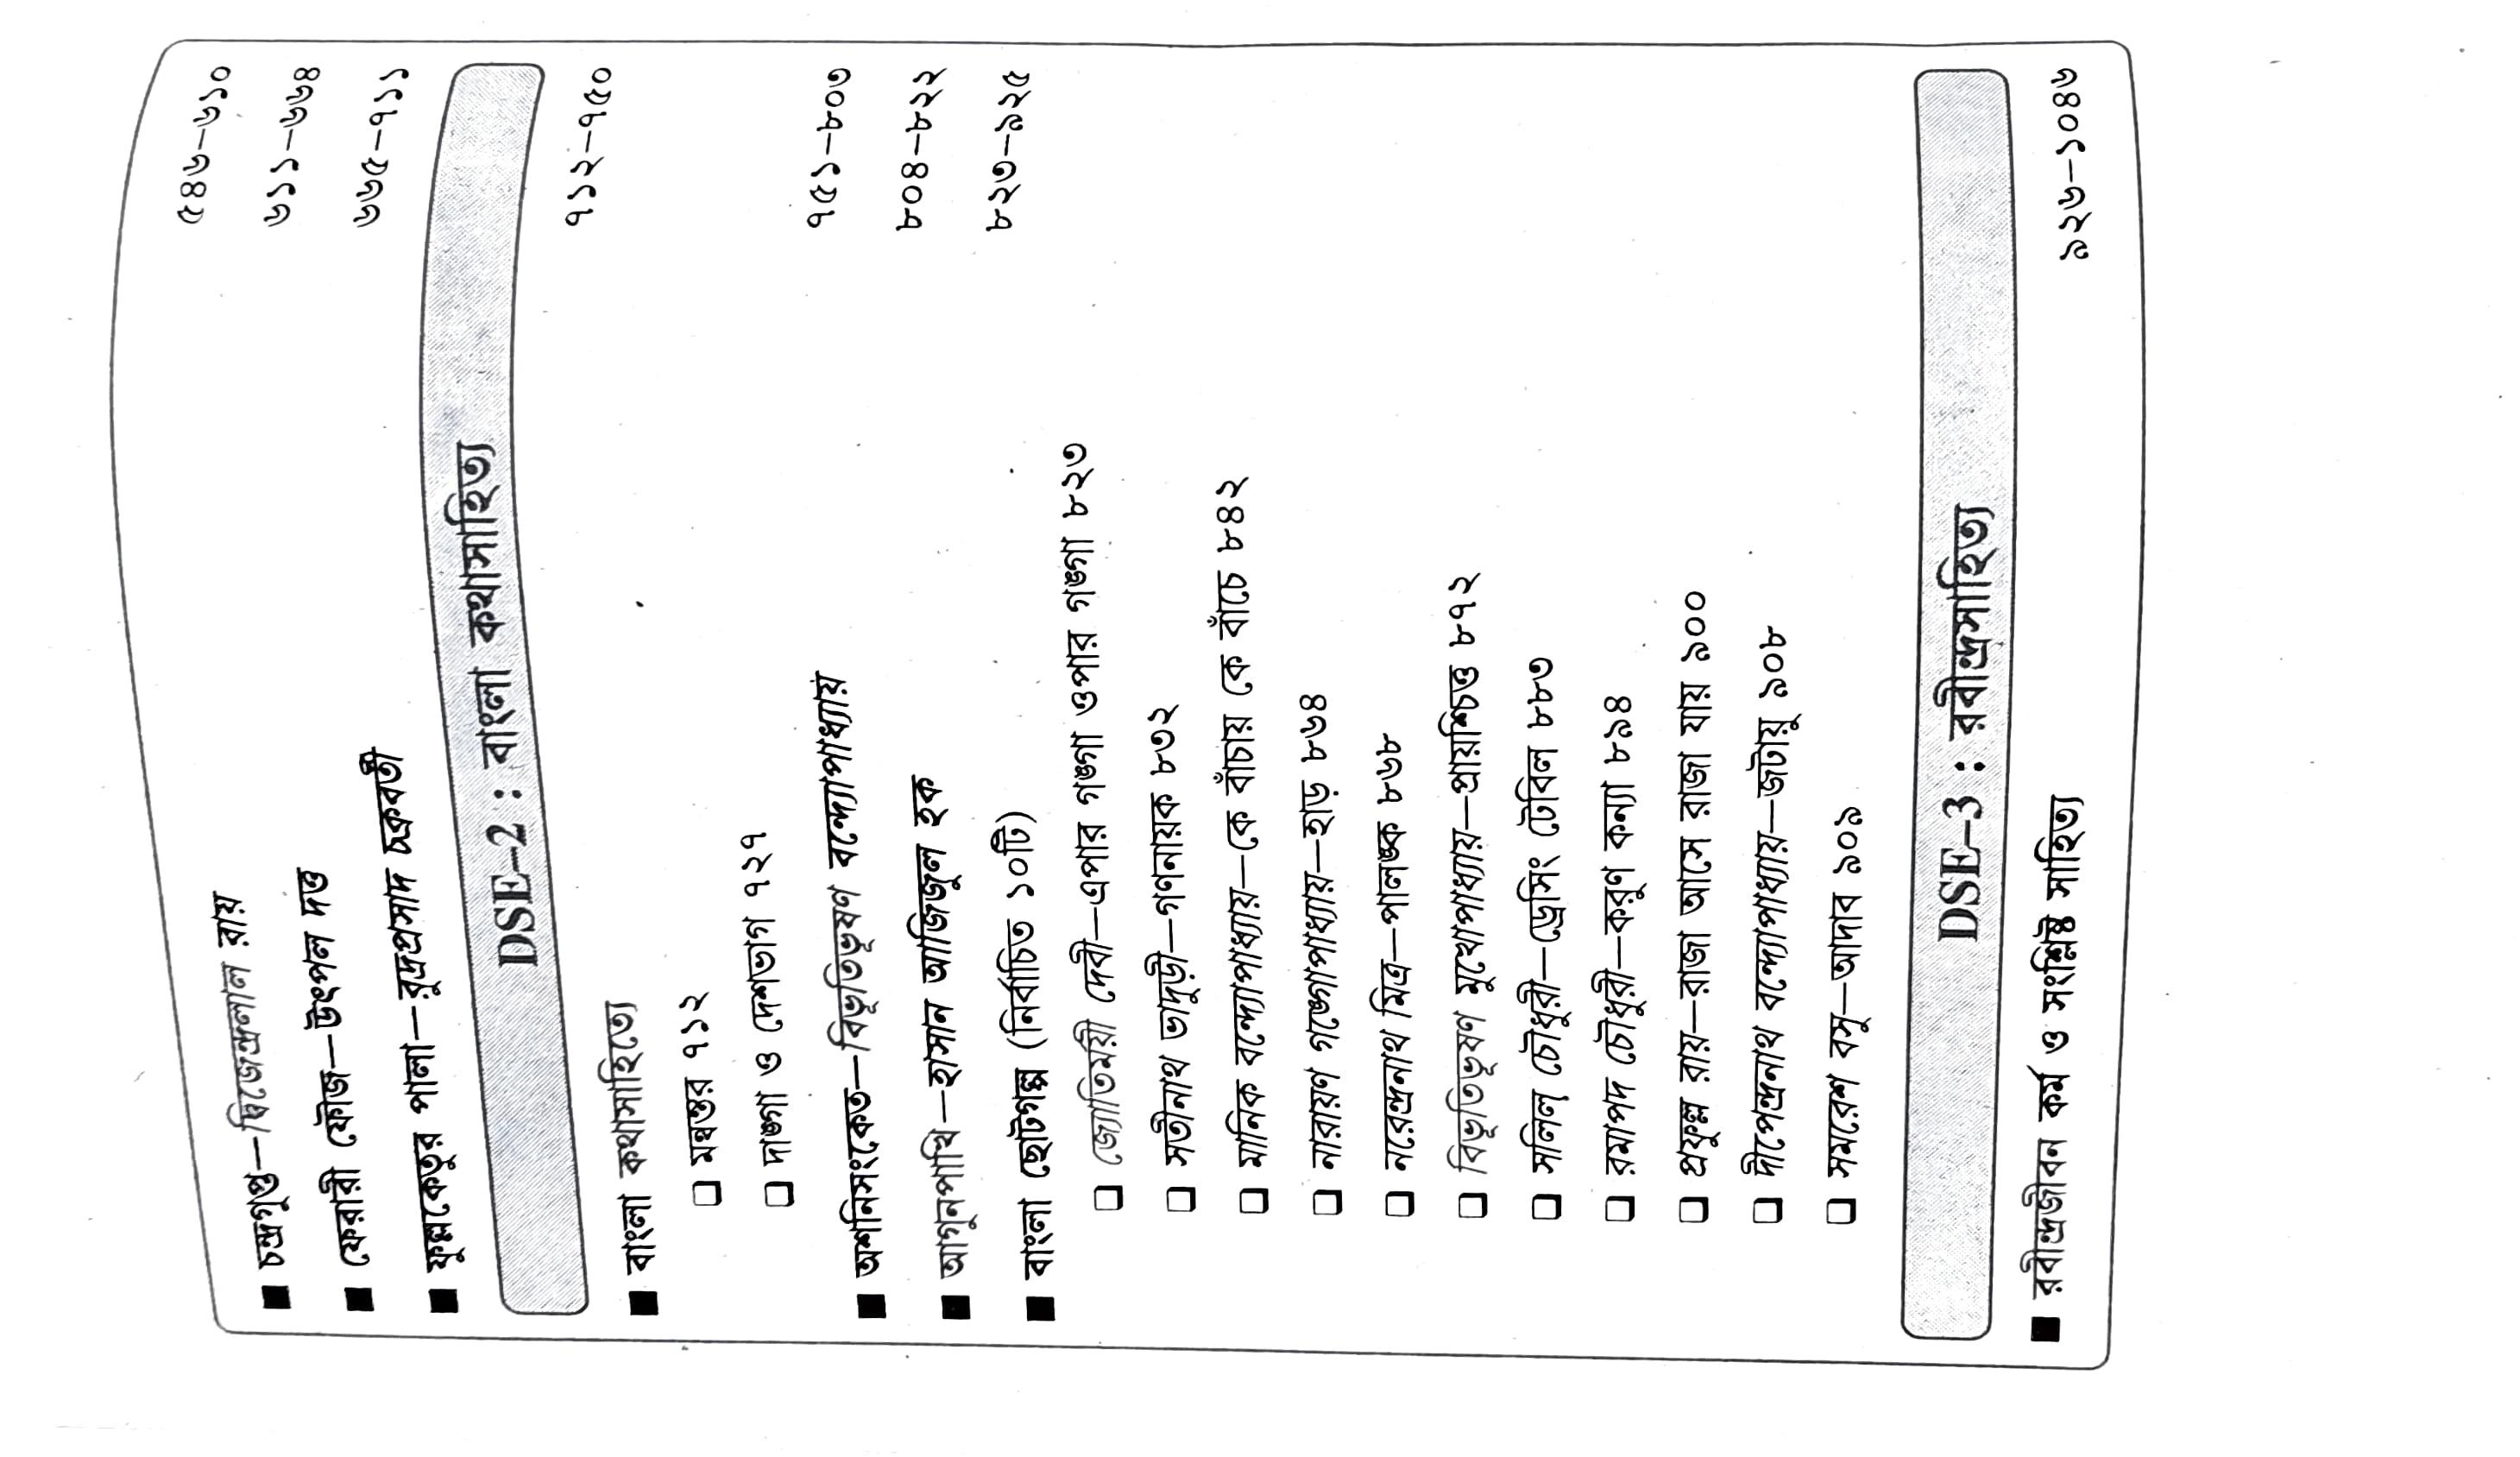 ■ চন্দ্রগুপ্ত—দ্বিজেন্দ্রলাল রায় ৫৪৬–৬১০
■ ফেরারী ফৌজ—উৎপল দত্ত ৬১১–৬৬৪
■ ফুল্লকেতুর পালা—রুদ্রপ্রসাদ চক্রবর্তী ৬৬৫–৭১১
DSE–2 : বাংলা কথাসাহিত্য
■ বাংলা কথাসাহিত্যে ৭১২–৭৫০
❑ মন্বন্তর ৭১২
❑ দাঙ্গা ও দেশভাগ ৭২৭
■ অশনিসংকেত—বিভূতিভূষণ বন্দ্যোপাধ্যায় ৭৫১–৮০৩
■ আগুনপাখি—হাসান আজিজুল হক ৮০৪–৮২২
■ বাংলা ছোটগল্প (নির্বাচিত ১০টি) ৮২৩–৯২৫
❑ জ্যোতির্ময়ী দেবী—এপার গঙ্গা ওপার গঙ্গা ৮২৩
❑ সতীনাথ ভাদুড়ী—গণনায়ক ৮৩২
❑ মানিক বন্দ্যোপাধ্যায়—কে বাঁচায় কে বাঁচে ৮৪২
❑ নারায়ণ গঙ্গোপাধ্যায়—হাড় ৮৬৪
❑ নরেন্দ্রনাথ মিত্র—পালঙ্ক ৮৬৮
❑ বিভূতিভূষণ মুখোপাধ্যায়—প্রায়শ্চিত্ত ৮৭২
❑ সলিল চৌধুরী—ড্রেসিং টেবিল ৮৮৩
❑ রমাপদ চৌধুরী—করুণ কন্যা ৮৯৪
❑ প্রফুল্ল রায়—রাজা আসে রাজা যায় ৯০০
❑ দীপেন্দ্রনাথ বন্দ্যোপাধ্যায়—জটায়ু ৯০৮
❑ সমরেশ বসু—আদাব ৯০৯
DSE–3 : রবীন্দ্রসাহিত্য
■ রবীন্দ্রজীবন কর্ম ও সংশ্লিষ্ট সাহিত্য ৯২৬–১০৪৬